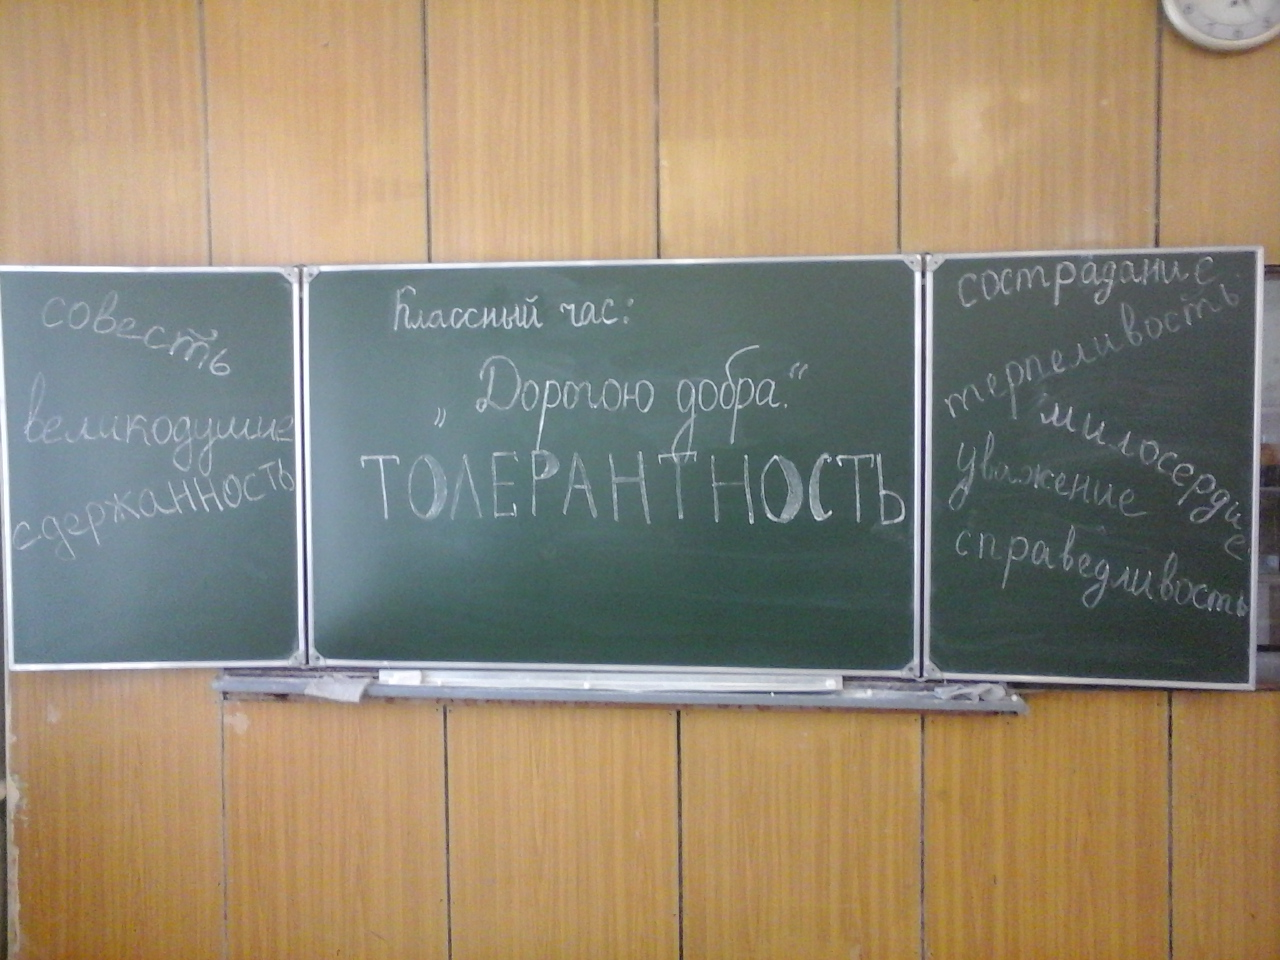 совесть
великодушие
сдержанность
Классный час:
„Дорогою добра.“
ТОЛЕРАНТНОСТЬ
сострадание
терпеливость
милосердие
уважение
справедливость